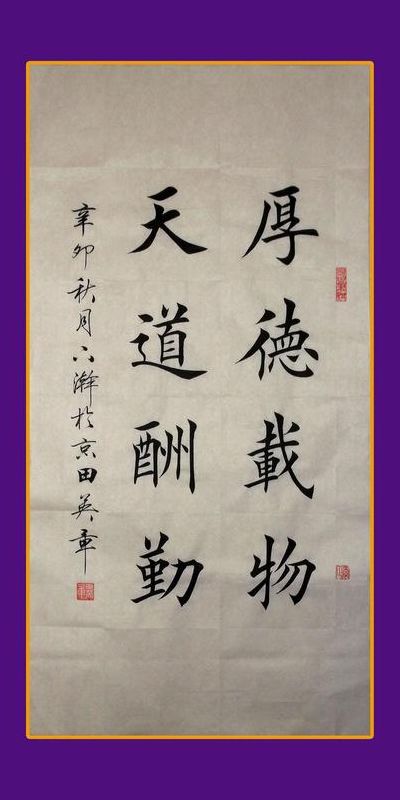 厚德載物
天道酬勤
辛卯秋月六瀚於京田英章